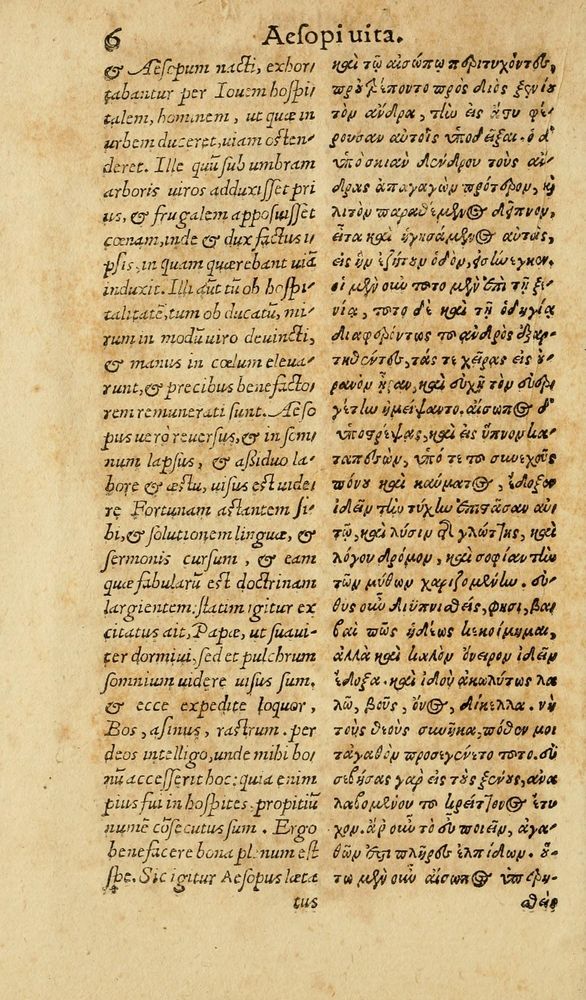 6 Aesopi uita.
& Aesopum nacti, exhor
tabantur per Iouem hospi-
talem, hominem, ut quæ in
urbem duceret, uiam osten-
deret. Ille quũ sub umbram
arboris uiros adduxisset pri
us, & frugalem apposuisset
cœnam, inde & dux factus i
psis, in quam quærebant uiã
induxit. Illi aũt tũ ob hospi-
talitatẽ, tum ob ducatũ, mi-
rum in modũ uiro deuincti,
& manus in cœlum eleua-
runt, & precibus benefacto-
rem remunerati sunt. Aeso
pus uerò reuersus, & in som
num lapsus, & assiduo la-
bore & æstu, uisus est uide-
re Fortunam astantem si-
bi, & solutionem linguæ, &
sermonis cursum, & eam
quæ fabularũ est doctrinam
largientem: statim igitur ex
citatus ait, Papæ, ut suaui-
ter dormiui, sed et pulchrum
somnium uidere uisus sum.
& ecce expedite loquor,
Bos, asinus, rastrum. per
deos intelligo, unde mihi bo-
nũ accesserit hoc: quia enim
pius fui in hospites, propitiũ
numẽ cõsecutus sum. Ergo
benefacere bona plenum est
spe. Sic igitur Aesopus læta
tus
καὶ τῷ αἰσώπῳ περιτυχόντες,
προὐτρέποντο πρὸς διὸς ξενίου
τὸν ἄνδρα, τὴν εἰς ἄστυ φέ-
ρουσαν αὐτοῖς ὑποδεῖξαι. ὁ δ'
ὑπὸ σκιὰν δένδρου τοὺς ἄν-
δρας ἀπαγαγὼν πρότερον, καὶ
λιτὸν παραθέμενος δεῖπνον,
εἶτα καὶ ἡγησάμενος αὐτοῖς,
εἰς ἣν ἐζήτουν ὁδὸν, ἐσήνεγκεν.
οἱ μὲν οὖν τοῦτο μὲν ἐπὶ τῇ ξε-
νίᾳ, τοῦτο δὲ καὶ τῇ ὁδηγίᾳ
διαφερόντως τοῦ ἀνδρὸς ἐξαρ-
τηθέντες, τάς τε χεῖρας εἰς οὐ-
ρανὸν ἦραν, καὶ εὐχῇ τὸν εὐερ-
γέτην ἠμείψαντο. αἴσωπος δ'
ὑποστρέψας, καὶ εἰς ὕπνον κα-
ταπεσὼν, ὑπό τε τοῦ συνεχοῦς
πόνου καὶ καύματος, ἔδοξεν
ἰδεῖν τὴν τύχην ἐπιστᾶσαν αὐ-
τῷ, καὶ λύσιν τῆς γλώττης, καὶ
λόγου δρόμον, καὶ σοφίαν τὴν
τῶν μύθων χαριζομένην. εὐ-
θὺς οὖν διϋπνισθεὶς, φησὶ, βα-
βαὶ πῶς ἡδέως κεκοίμημαι,
ἀλλὰ καὶ καλὸν ὄνειρον ἰδεῖν
ἔδοξα. καὶ ἰδοὺ ἀκωλύτως λα
λῶ, βοῦς, ὄνος, δίκελλα. νὴ
τοὺς θεοὺς συνῆκα, πόθεν μοι
τἀγαθὸν προσεγένετο τοῦτο. εὐ
σεβήσας γὰρ εἰς τοὺς ξένους, ἀνα
λαβομένου τοῦ κρείττονος ἔτυ
χον. ἆρ' οὖν τὸ εὖ ποιεῖν, ἀγα-
θῶν ἐστι πλῆρες ἐλπίδων. οὕ-
τω μὲν οὖν αἴσωπος ὑπερη-
σθεὶς